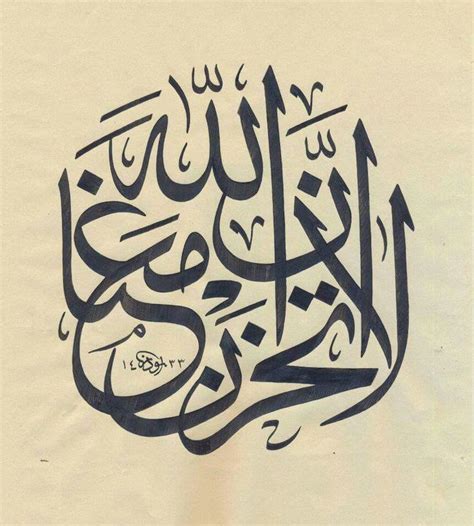 لا تحزن إنّ اللّه معنا
١٤٣٣